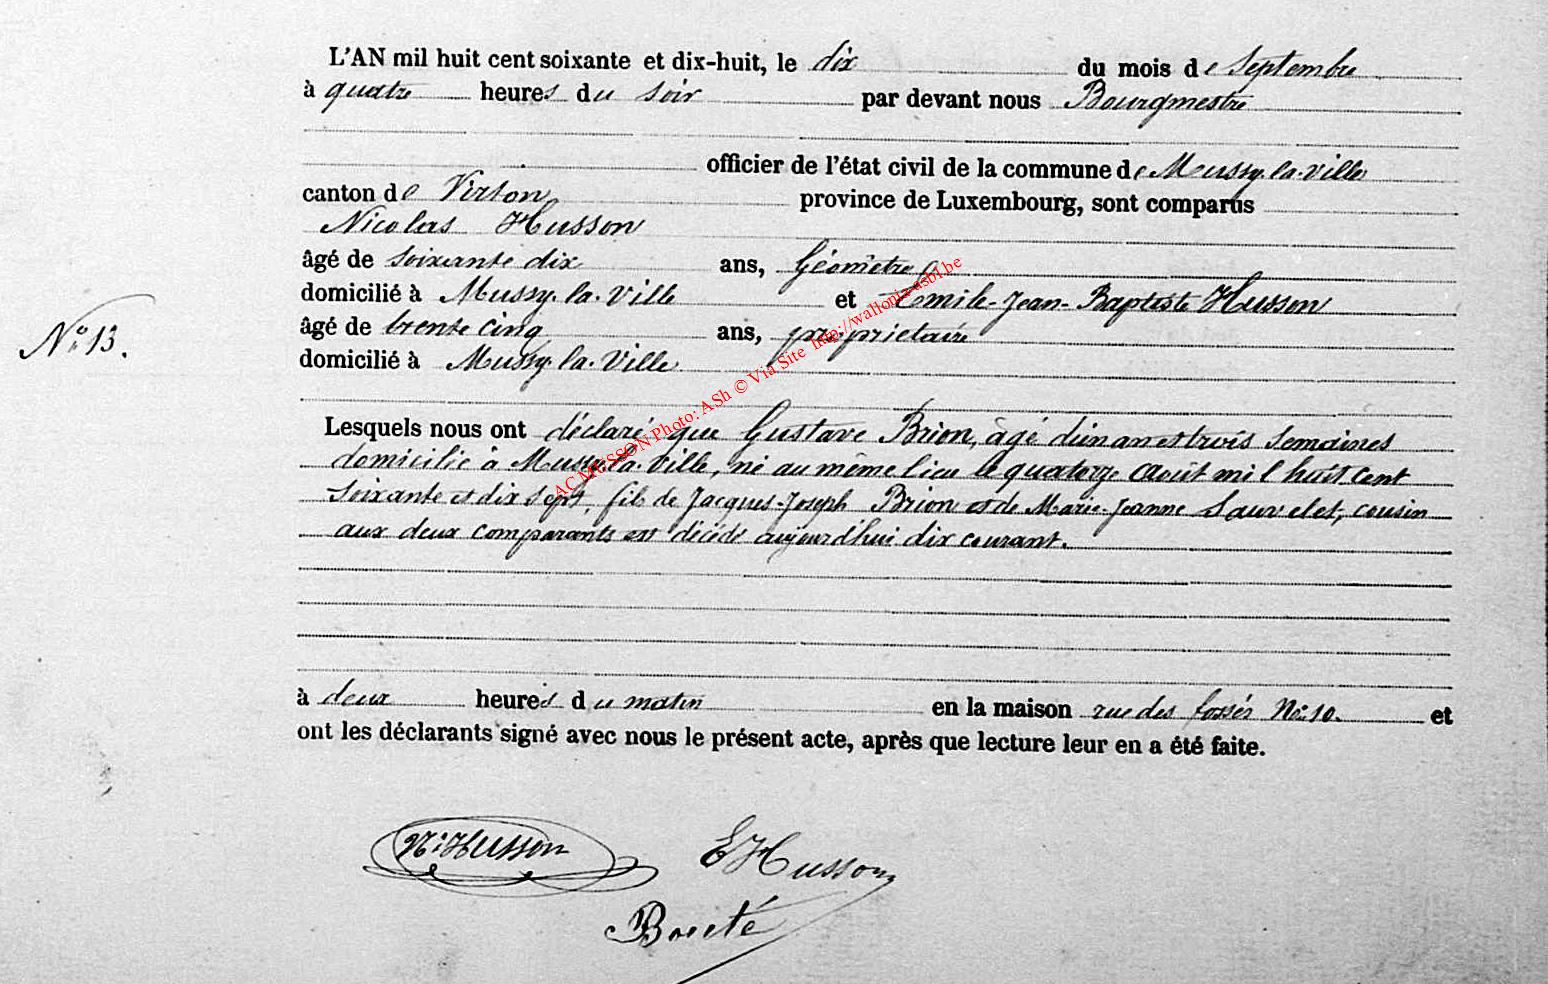 L'AN mil huit cent soixante et dix-huit, le dix du mois de Septembre
à quatre heures du soir par devant nous Bourgmestre
officier de l'état civil de la commune de Mussy-la-ville
canton de Virton province de Luxembourg, sont comparus
Nicolas Husson
âgé de soixante dix ans, Géomètre
domicilié à Mussy-la-Ville et Emile-Jean-Baptiste Husson
âgé de trente cinq ans, propriétaire
N° 13.
domicilié à Mussy-la-Ville
Lesquels nous ont déclaré que Gustave Brion, âgé d'un an et trois semaines
domicilié à Mussy-la-Ville, né au même lieu le quatorze août mil huit cent
soixante et dix sept, fils de Jacques-Joseph Brion et de Marie-Jeanne Sauvelet, cousin
aux deux comparants est décédé aujourd'hui dix courant.
à deux heures du matin en la maison rue des fossés No 10. et
ont les déclarants signé avec nous le présent acte, après que lecture leur en a été faite.
N. Husson
E Husson
Bouté
AC MUSSON Photo: ASh © Via Site http://wallonia-asbl.be